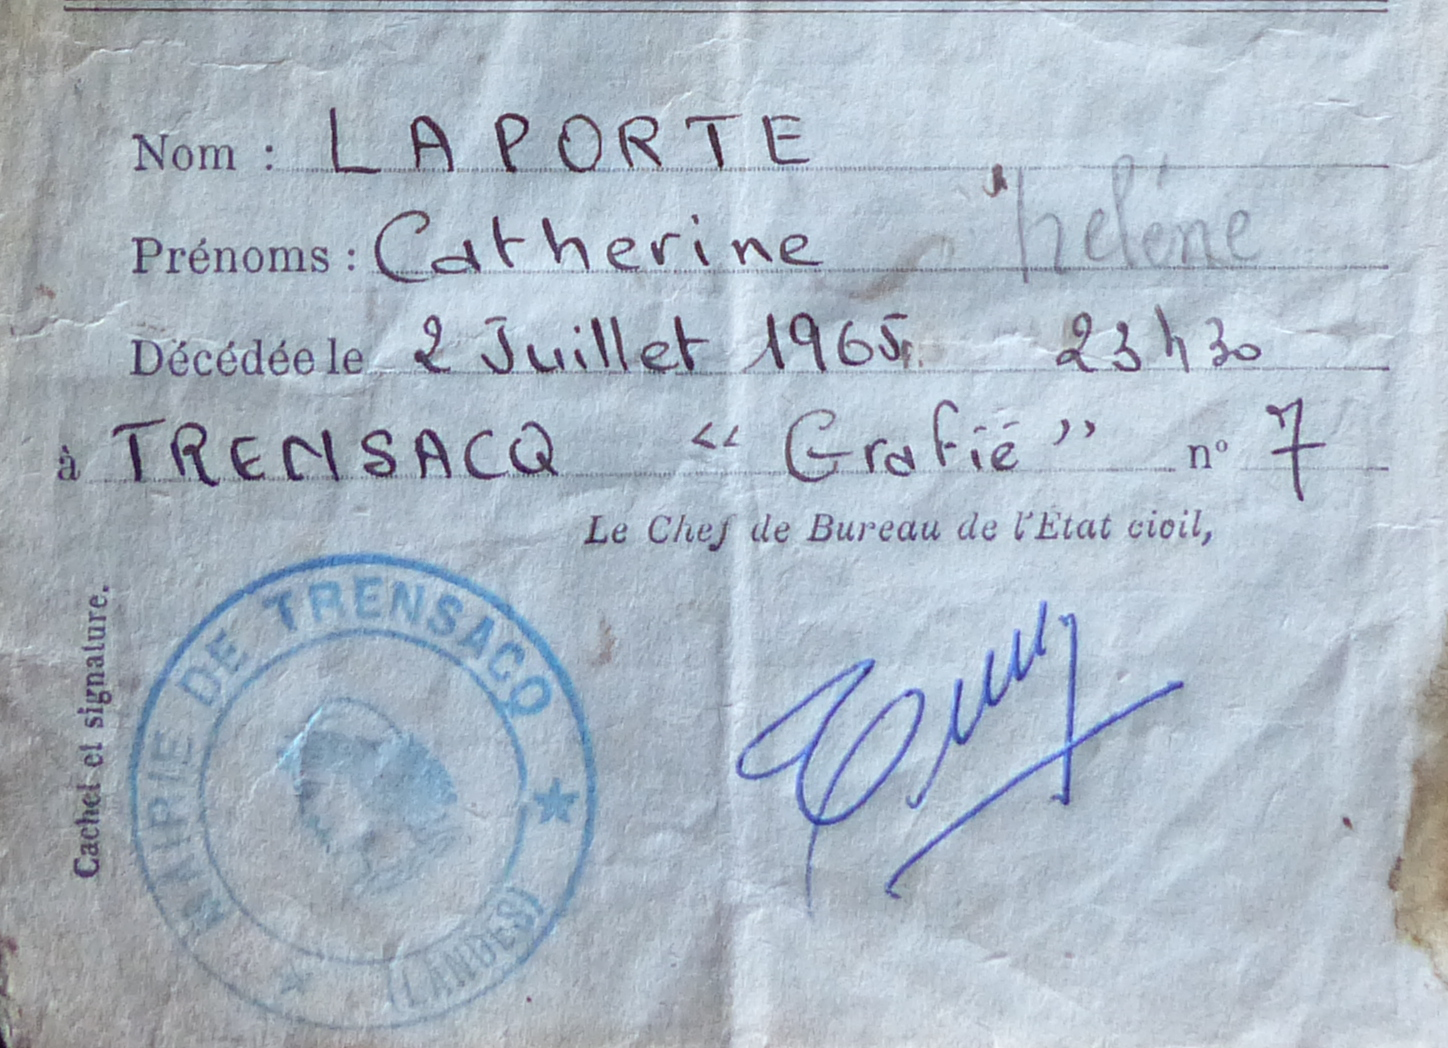 Nom : LAPORTE
Prénoms : Catherine hélène
Décédée le 2 Juillet 1965 23 h 30
à TRENSACQ “ Grafié ” nº 7
Le Chef de Bureau de l'État civil,
Cachet et signature.
MAIRIE DE TRENSACQ
(LANDES)